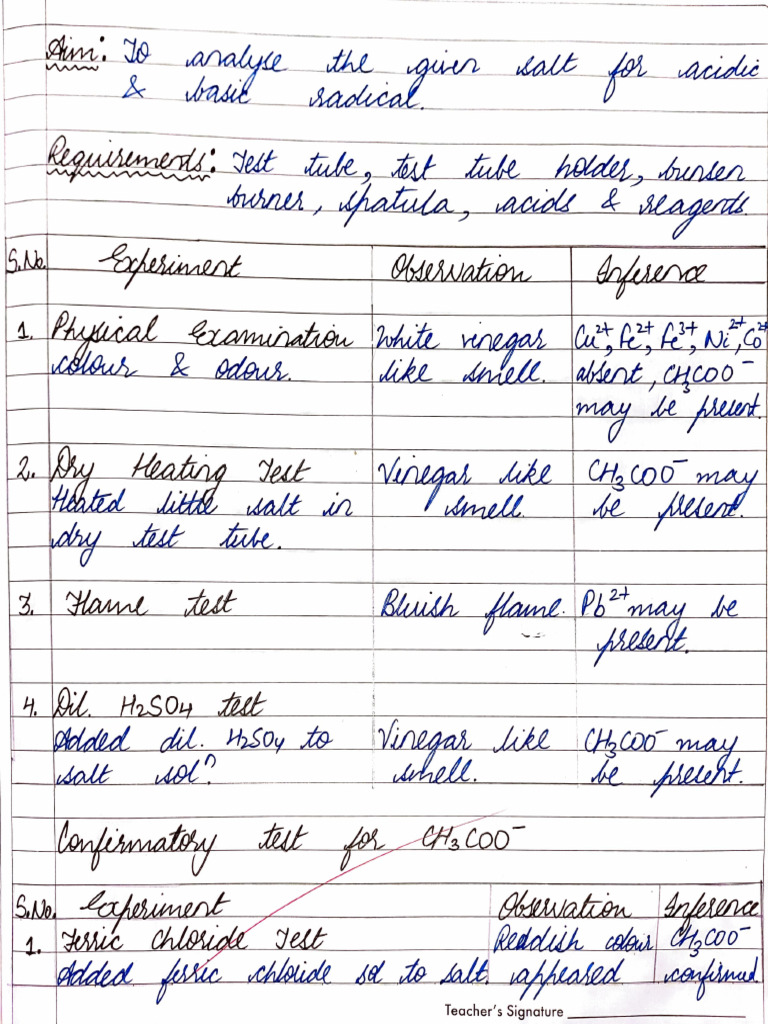 Aim: To analyse the given salt for acidic
& basic radical.
Requirements: Test tube, test tube holder, bunsen
burner, spatula, acids & reagents.
S.No. Experiment Observation Inference
1. Physical Examination White vinegar Cu²⁺, Fe²⁺, Fe³⁺, Ni²⁺, Co²⁺
colour & odour. like smell. absent, CH₃COO⁻
may be present.
2. Dry Heating Test Vinegar like CH₃COO⁻ may
Heated little salt in smell. be present.
dry test tube.
3. Flame test Bluish flame. Pb²⁺ may be
present.
4. Dil. H₂SO₄ test
Added dil. H₂SO₄ to Vinegar like CH₃COO⁻ may
salt solⁿ. smell. be present.
Confirmatory test for CH₃COO⁻
S.No. Experiment Observation Inference
1. Ferric Chloride Test Reddish colour CH₃COO⁻
Added ferric chloride sol to salt. appeared confirmed
Teacher's Signature